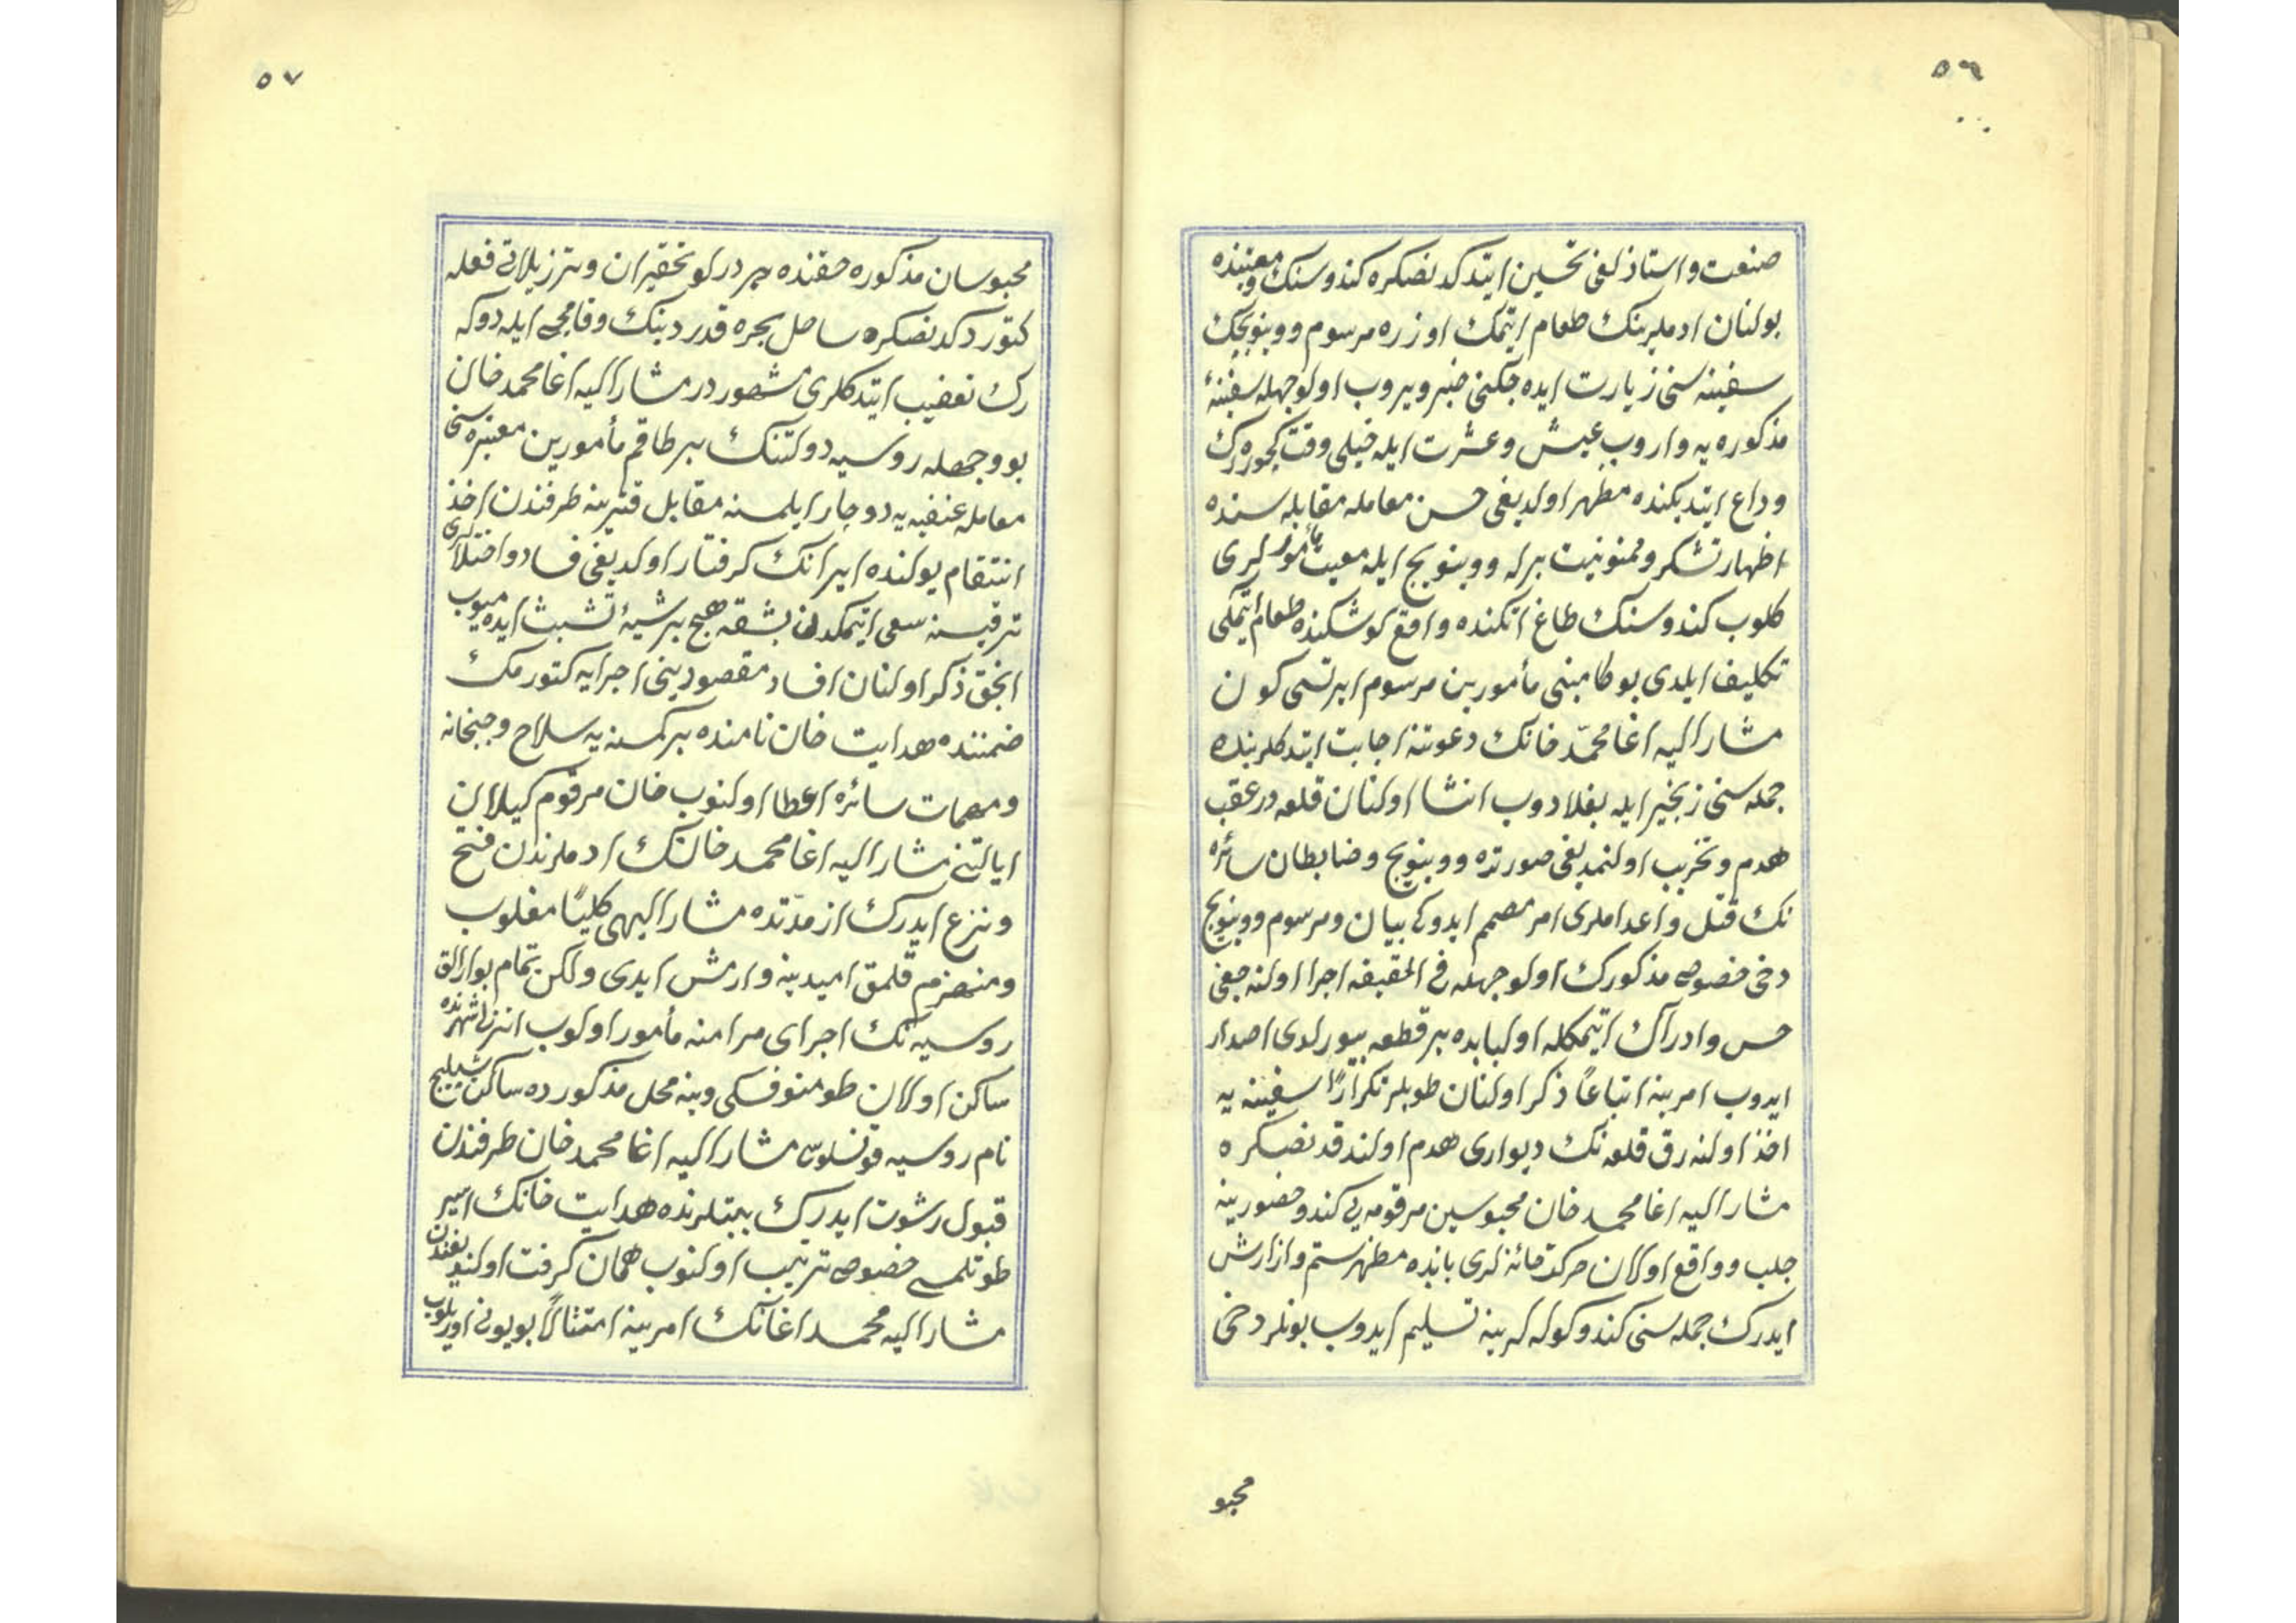 ٥٦
صنعت و استاذلغی تحسین ایتدکدنصکره کندوسنك و معیتنده
بولنان ادملرینك طعام ایتمك اوزره مرسوم ووینویچك
سفینه سنی زیارت ایده جكنی خبر ویروب اولوجهله سفینۀ
مذکوره یه واروب عیش و عشرت ایله خیلی وقت کچوره رك
وداع ایتدیکنده مظهر اولدیغی حسن معامله مقابله سنده
اظهار تشکر و ممنونیت برله ووینویچ ایله معیت مأمورلری
کلوب کندوسنك طاغ اتکنده واقع کوشکنده طعام ایتمکی
تکلیف ایلدی بوکا مبنی مأمورین مرسوم ایرتسی کون
مشار الیه اغا محمّد خانك دعوتنه اجابت ایتدکلرینده
جمله سنی زنجیر ایله بغلادوب انشا اولنان قلعه درعقب
هدم و تخریب اولنمدیغی صورتده ووینویچ و ضابطان سائره
نك قتل و اعداملری امر مصمم ایدوکی بیان و مرسوم ووینویچ
دخی خصوص مذکورك اولوجهله فی الحقیقه اجرا اولنه جغی
حس و ادراك ایتمکله اولبابده بر قطعه بیورلدی اصدار
ایدوب امرینه اتباعاً ذکر اولنان طوپلر تکراراً سفینه یه
اخذ اولنه رق قلعه نك دیواری هدم اولندقدنصکره
مشار الیه اغا محمد خان محبوسین مرقومه یی کندو حضورینه
جلب و واقع اولان حرکت خائنه لری بابنده مظهر ستم و ازارش
ایدرك جمله سنی کندو کوله لرینه تسلیم ایدوب بونلر دخی
محبو
٥٧
محبوسان مذکوره حقنده هر درلو تحقیران و ترزیلاتی فعله
کتوردکدنصکره ساحل بحره قدر دینك و قامچی ایله دوکه
رك تعضیب ایتدکلری مشهوردر مشار الیه اغا محمد خان
بو وجهله روسیه دولتنك بر طاقم مأمورین معتبره سنی
معامله عنفیه یه دوچار ایلمسنه مقابل قتربنه طرفندن اخذ
انتقام یولنده ایرانك کرفتار اولدیغی فساد و اختلالری
ترقیسنه سعی ایتمکدن بشقه هیچ بر شیئه تشبث ایده میوب
انجق ذکر اولنان افساد مقصودینی اجرایه کتورمك
ضمننده هدایت خان نامنده بر کمسنه یه سلاح و جبخانه
و مهمات سائره اعطا اولنوب خان مرقوم کیلان
ایالتنی مشار الیه اغا محمد خانك ادملرندن فتح
و نزع ایدرك از مدّتده مشار الیهی کلیّاً مغلوب
و منهزم قلمق امیدینه وارمش ایدی ولکن تمام بوارالق
روسیه نك اجرای مرامنه مأمور اولوب انزلی شهرنده
ساکن اولان طومنوفسکی وینه محل مذکورده ساکن
نام روسیه قونسلوسی مشار الیه اغا محمد خان طرفندن
قبول رشوت ایدرك بینلرنده هدایت خانك اسیر
طوتلمسی خصوصی ترتیب اولنوب همان کرفت اولندیغندن
مشار الیه محمد اغانك امرینه امتثالاً بوینی اوریلوب